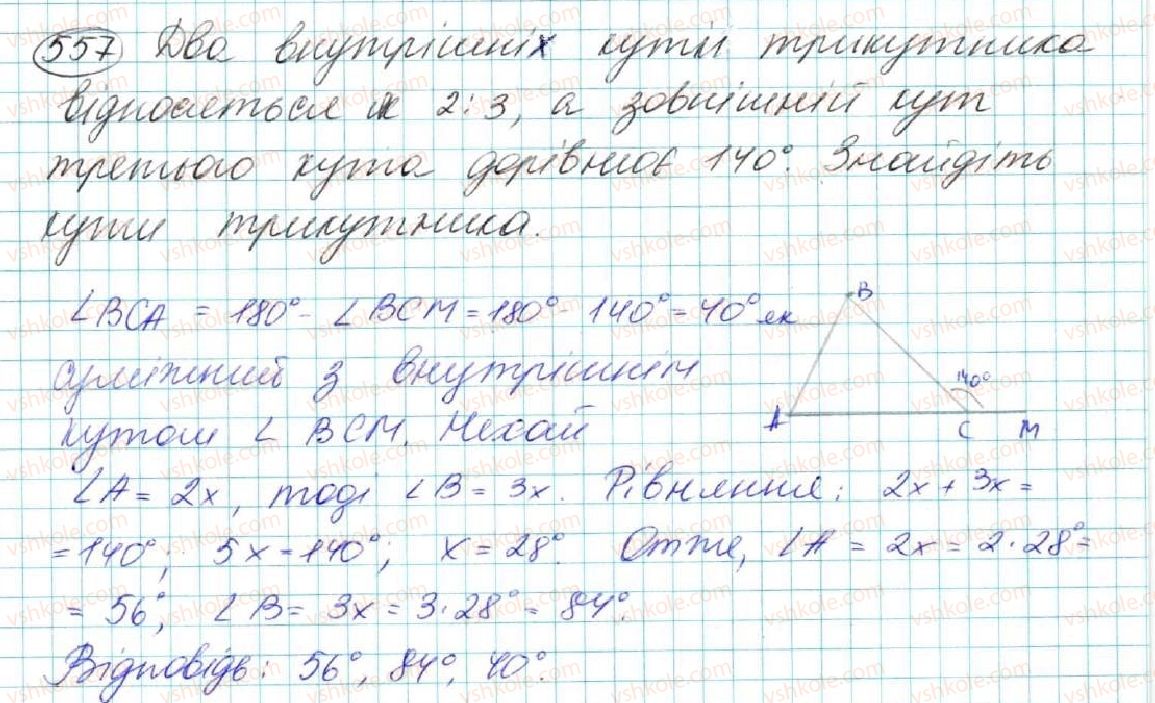 557 Два внутрішніх кути трикутника
відносяться як 2:3, а зовнішній кут
третього кута дорівнює 140°. Знайдіть
кути трикутника.
∠BCA = 180° - ∠BCM = 180° - 140° = 40° як
суміжний з внутрішнім
кутом ∠ BCM. Нехай
∠A = 2x, тоді ∠B = 3x. Рівняння: 2x + 3x =
= 140°; 5x = 140°; x = 28°. Отже, ∠A = 2x = 2·28° =
= 56°, ∠B = 3x = 3·28° = 84°.
Відповідь: 56°, 84°, 40°.
B
140°
A C M
vshkole.com